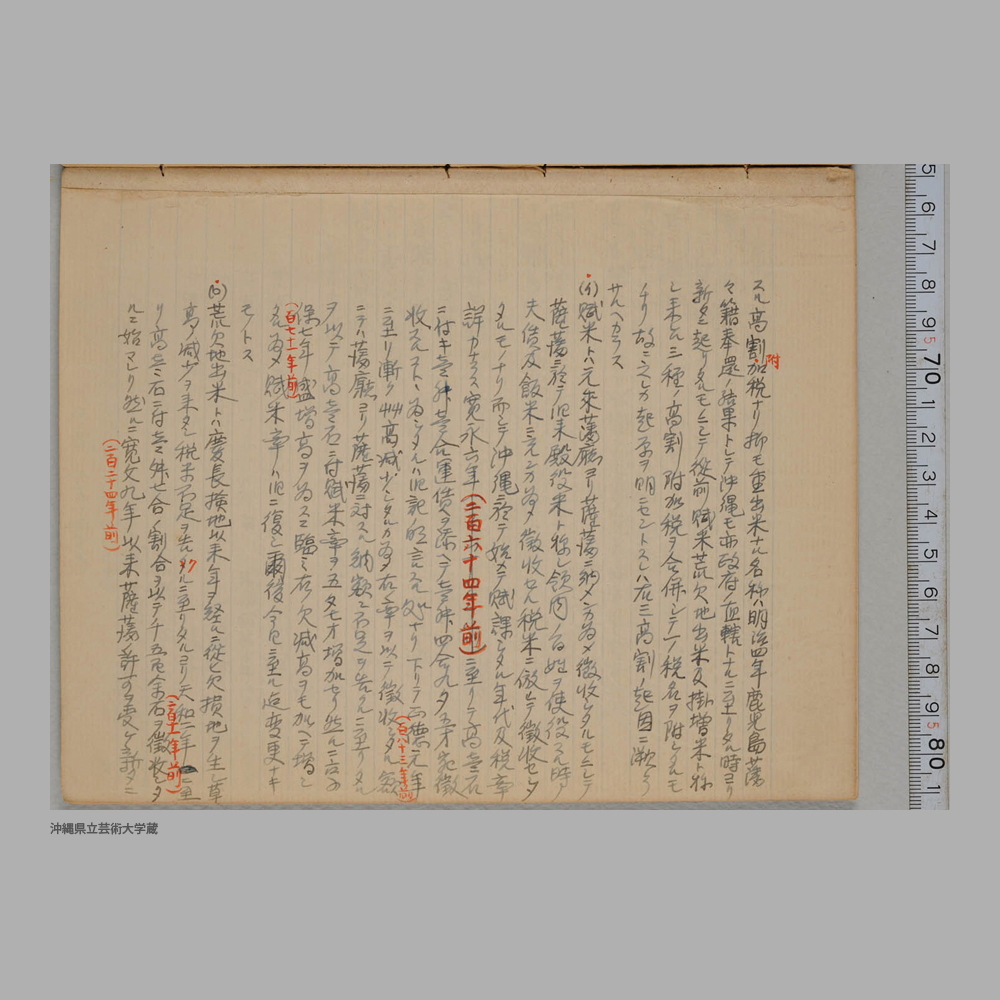 スル高割附加税ナリ抑モ重出米ナル名称ハ明治四年鹿児島藩
々籍奉還ノ結果トシテ沖縄モ亦政府ノ直轄トナルニ至リタル時ヨリ
新タニ起リタルモノニシテ従前賦米荒欠地出米及掛増米ト称
シ来レル三種ノ高割附加税ヲ合併シテ一ノ税名ヲ附シタルモ
ナリ故ニ之レカ起原ヲ明ニセントスレハ右三高割ノ起因ニ溯ラ
サルヘカラス
(イ)賦米トハ元来藩廰ヨリ薩藩ニ納メン為メ徴収シタルモノニシテ
薩藩ニ於テ旧来殿役米ト称シ領内ノ百姓ヲ使役スル時ノ
夫賃及飯米ニ充ル為メ徴収セル税米ニ倣ヒテ徴収セシ
タルモノナリ而シテ沖縄ニ於テ始メテ賦課シタル年代及税率
詳カナラス寛永六年(二百六十四年前)ニ至リテ高壱石
ニ付キ壱舛壱合運賃ヲ添ヘテ壱舛四合九夕五才宛徴
収スルコトヽ為シタルハ旧記ノ明言スル処ナリ下リテ正徳元年(百八十三年前)
ニ至リ漸ク高減少シタルカ為メ在率ヲ以テ徴収シタル
ニテハ藩廰ヨリ薩藩ニ対スル納額ニ不足ヲ告クルニ至リタル
ヲ以テ高壱石ニ付賦米率ヲ五夕七才増加セリ然ルニ享
保七年(百七十一年前)盛増高ヲ為スニ臨ミ右欠減高ヲモ加ヘテ増シ
タル為メ賦米率ハ旧ニ復シ爾後今日ニ至ル迄変更ナキ
モノトス
(ロ)荒欠地出米トハ慶長検地以来年ヲ経ルニ従ヒ欠損地ヲ生シ草
高減少ヲ来タシ税米不足ヲ告クルニ至リタルヨリ天和二年(二百十一年前)ニ至
リ高壱石ニ付壱舛七合ノ割合ヲ以テ千五百余石ヲ徴収シタ
ルニ始マレリ然ルニ寛文九年(二百二十四年前)以来薩藩ノ許可ヲ受ケ新タニ
沖縄県立芸術大学蔵
5 6 7 8 9 5 70 1 2 3 4 5 6 7 8 9 5 80 1